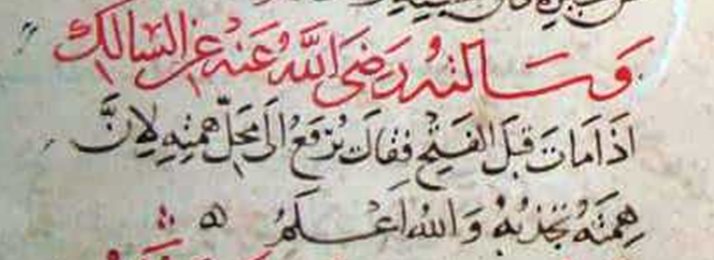 وَسَالتهُ رَضِىَ اللَّهُ عَنْهُ عَنِ السَّالِكِ
اذَا مَاتَ قَبلَ الفَتْحِ فَقَالَ يُرْفَعُ الَى مَحَلِّ هِمَّتِهِ لِانَّ
هِمَتَهُ تجْذِبُهُ وَاللهُ اعْلَمُ